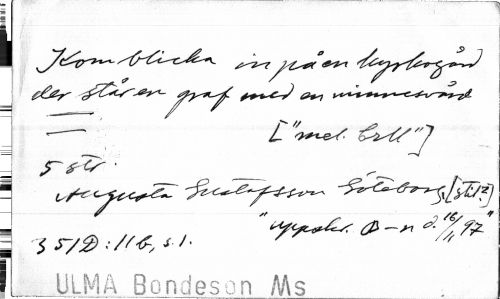 Kom blicka in på en kyrkogård
der står en graf med en minnesvård
["mel. Crll"]
5 str.
Augusta Gustafsson Göteborg [stud.?]
"uppskr. O–n d. 16/11 97"
351D:11b, s.1.
ULMA Bondeson Ms